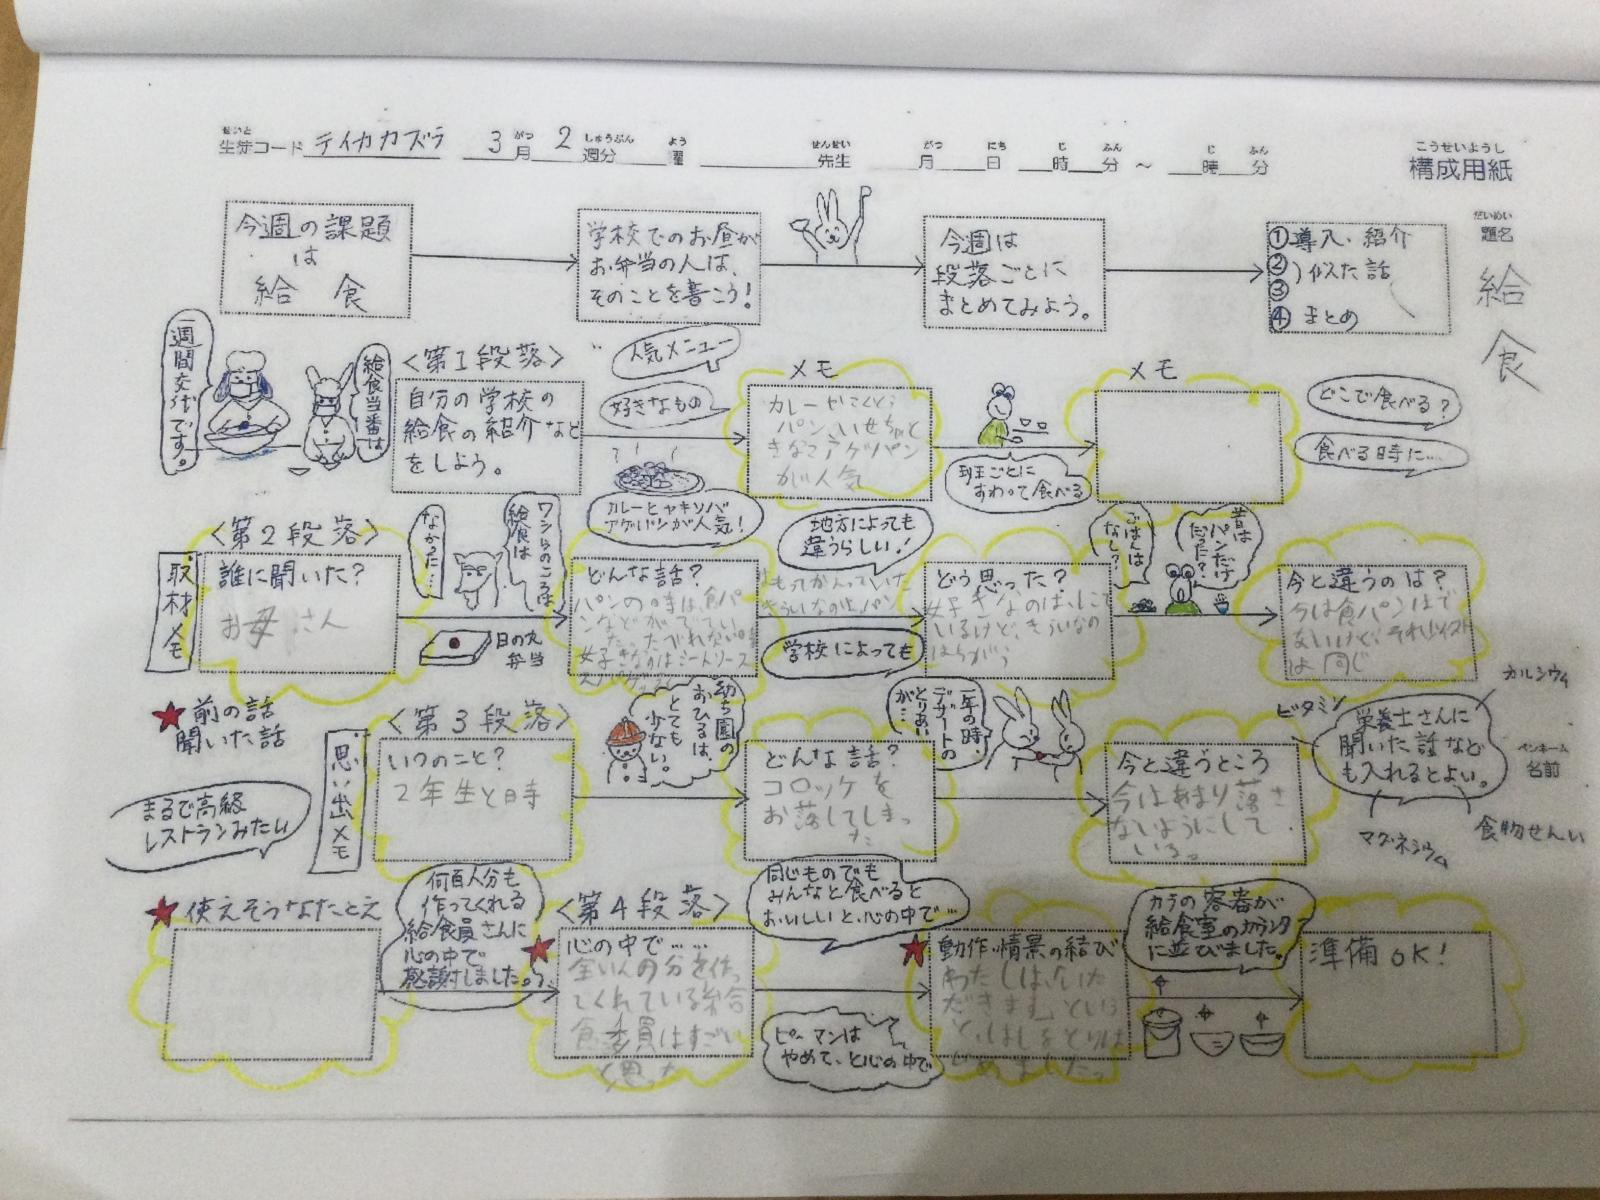 せいと
生徒コード テイカカズラ 3月 2週分 曜 先生 月 日 時 分 ~ 時 分
がつ しゅうぶん よう せんせい がつ にち じ ふん じ ふん
こうせいようし
構成用紙
だいめい
題名
給食
今週の課題
は
給 食
学校でのお昼が
お弁当の人は、
そのことを書こう!
今週は
段落ごとに
まとめてみよう。
①導入、紹介
②)似た話
③
④まとめ
一週間交代です。
給食当番は
<第1段落>
自分の学校の
給食の紹介など
をしよう。
人気メニュー
好きなもの
カレーとヤキソバ
アゲパンが人気!
メモ
パン、
きなこアゲパン
が人気
班ごとに
すわって食べる
メモ
どこで食べる?
食べる時に…
<第2段落>
取材メモ
誰に聞いた?
お母さん
ワシらのころは
給食は
なかった…
日の丸
弁当
どんな話?
パンの時は食パ
ンなどがでてい
女子きなのはミートソース
地方によっても
違うらしい!
学校によっても
どう思った?
いるけど、きらいなの
はちがう
ごはんは
なし?
昔は
パンだけ
だった?
今と違うのは?
今は食パンはで
ないけど、
は同じ
★前の話
聞いた話
<第3段落>
思い出メモ
いつのこと?
2年生と時
まるで高級
レストランみたい
幼ち園の
おひるは、
とても
少ない。
どんな話?
コロッケを
お落してしまっ
た
一年の時、
デザートの
とりあい
が…
今と違うところ
今はあまり落さ
ないようにして
いる。
栄養士さんに
聞いた話など
も入れるとよい。
ビタミン
カルシウム
マグネシウム
食物せんい
ペンネーム
名前
★使えそうなたとえ
何百人分も
作ってくれる
給食員さんに
心の中で
感謝しました。
<第4段落>
★心の中で……
全いんの分を作っ
てくれている給
食委員はすごい
と思った
同じものでも
みんなと食べると
おいしいと、心の中で…
ピーマンは
やめて、と心の中で
★動作・情景の結び
わたしは、いた
だきます」という
と、はしをとりは
じめました。
カラの容器が
給食室のカウンタ
に並びました。
準備OK!